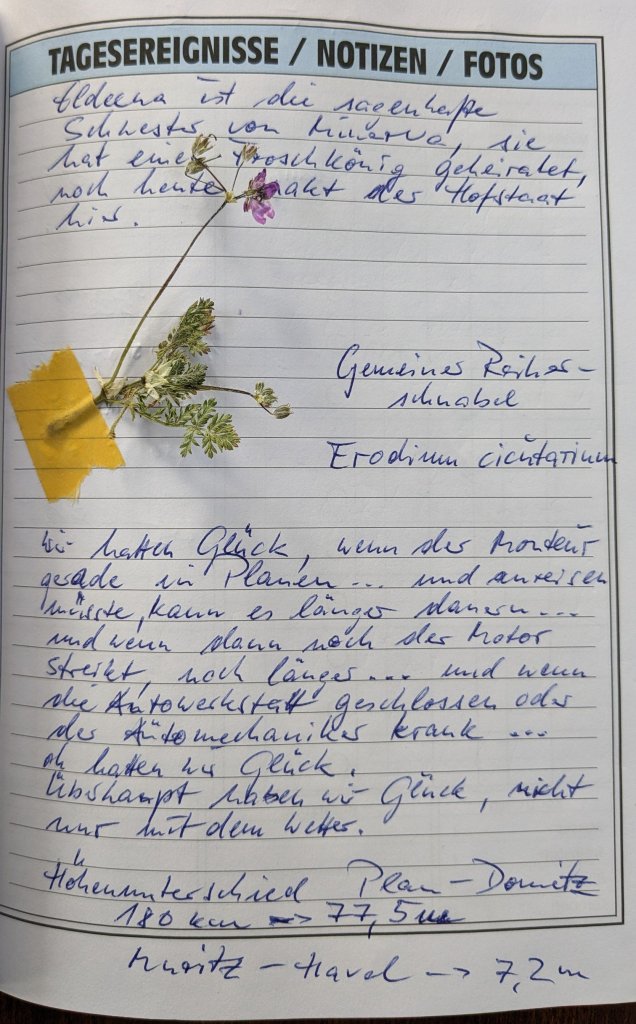 TAGESEREIGNISSE / NOTIZEN / FOTOS
Eldeena ist die sagenhafte
Schwester von Minerva, sie
hat einen Froschkönig geheiratet,
noch heute quakt der Hofstaat
hier.
Gemeiner Reiher-
schnabel
Erodium cicutarium
Wir hatten Glück, wenn der Monteur
gerade in Planen ... und anreisen
müsste, kann es länger dauern ...
und wenn dann noch der Motor
streikt, noch länger ... und wenn
die Autowerkstatt geschlossen oder
der Automechaniker krank ...
oh hatten wir Glück.
Überhaupt haben wir Glück, nicht
nur mit dem Wetter.
Höhenunterschied Plau - Dömitz
180 km -> 77,5 m
Müritz - Havel -> 7,2 m